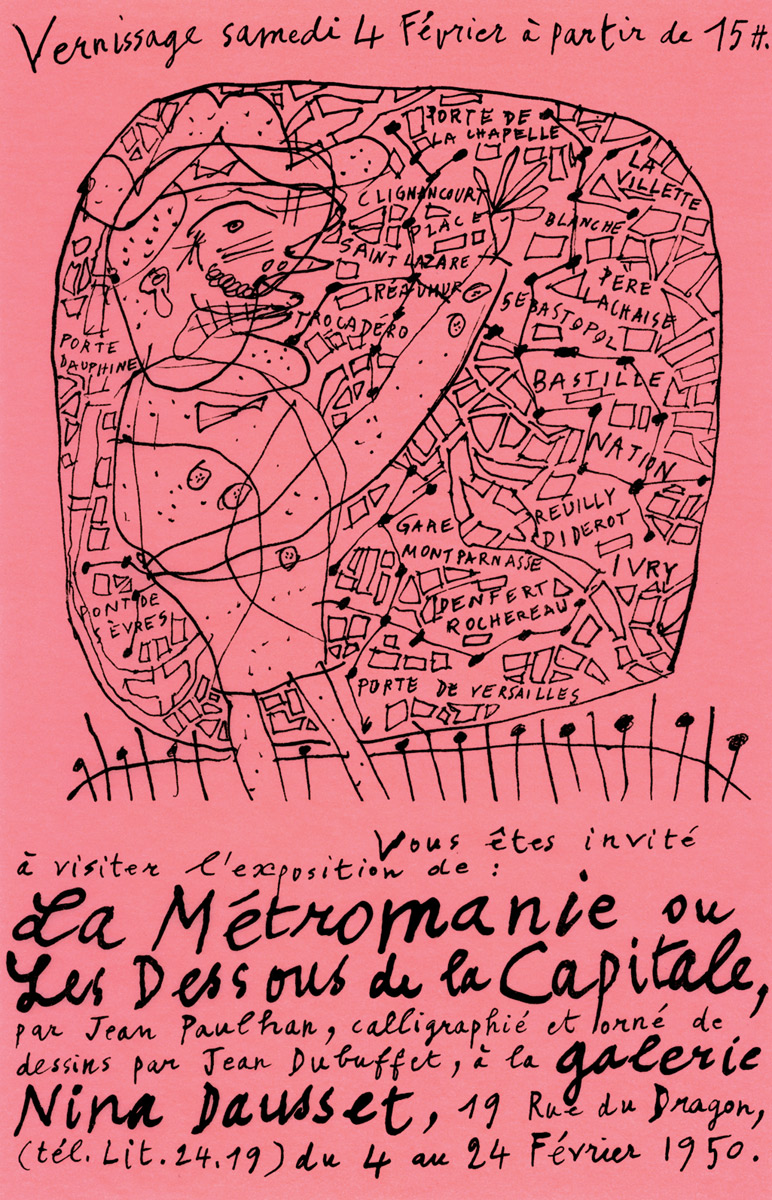 Vernissage samedi 4 Février à partir de 15H.
PORTE DE
LA CHAPELLE
LA
VILLETTE
CLIGNANCOURT
PLACE
BLANCHE
SAINT LAZARE
RÉAUMUR
PÈRE
LACHAISE
SÉBASTOPOL
TROCADÉRO
PORTE
DAUPHINE
BASTILLE
NATION
REUILLY
DIDEROT
GARE
MONTPARNASSE
IVRY
DENFERT
ROCHEREAU
PONT DE
SÈVRES
PORTE DE VERSAILLES
Vous êtes invité
à visiter l'exposition de :
La Métromanie ou
Les Dessous de la Capitale,
par Jean Paulhan, calligraphié et orné de
dessins par Jean Dubuffet, à la galerie
Nina Dausset, 19 Rue du Dragon,
(tél. Lit. 24.19) du 4 au 24 Février 1950.